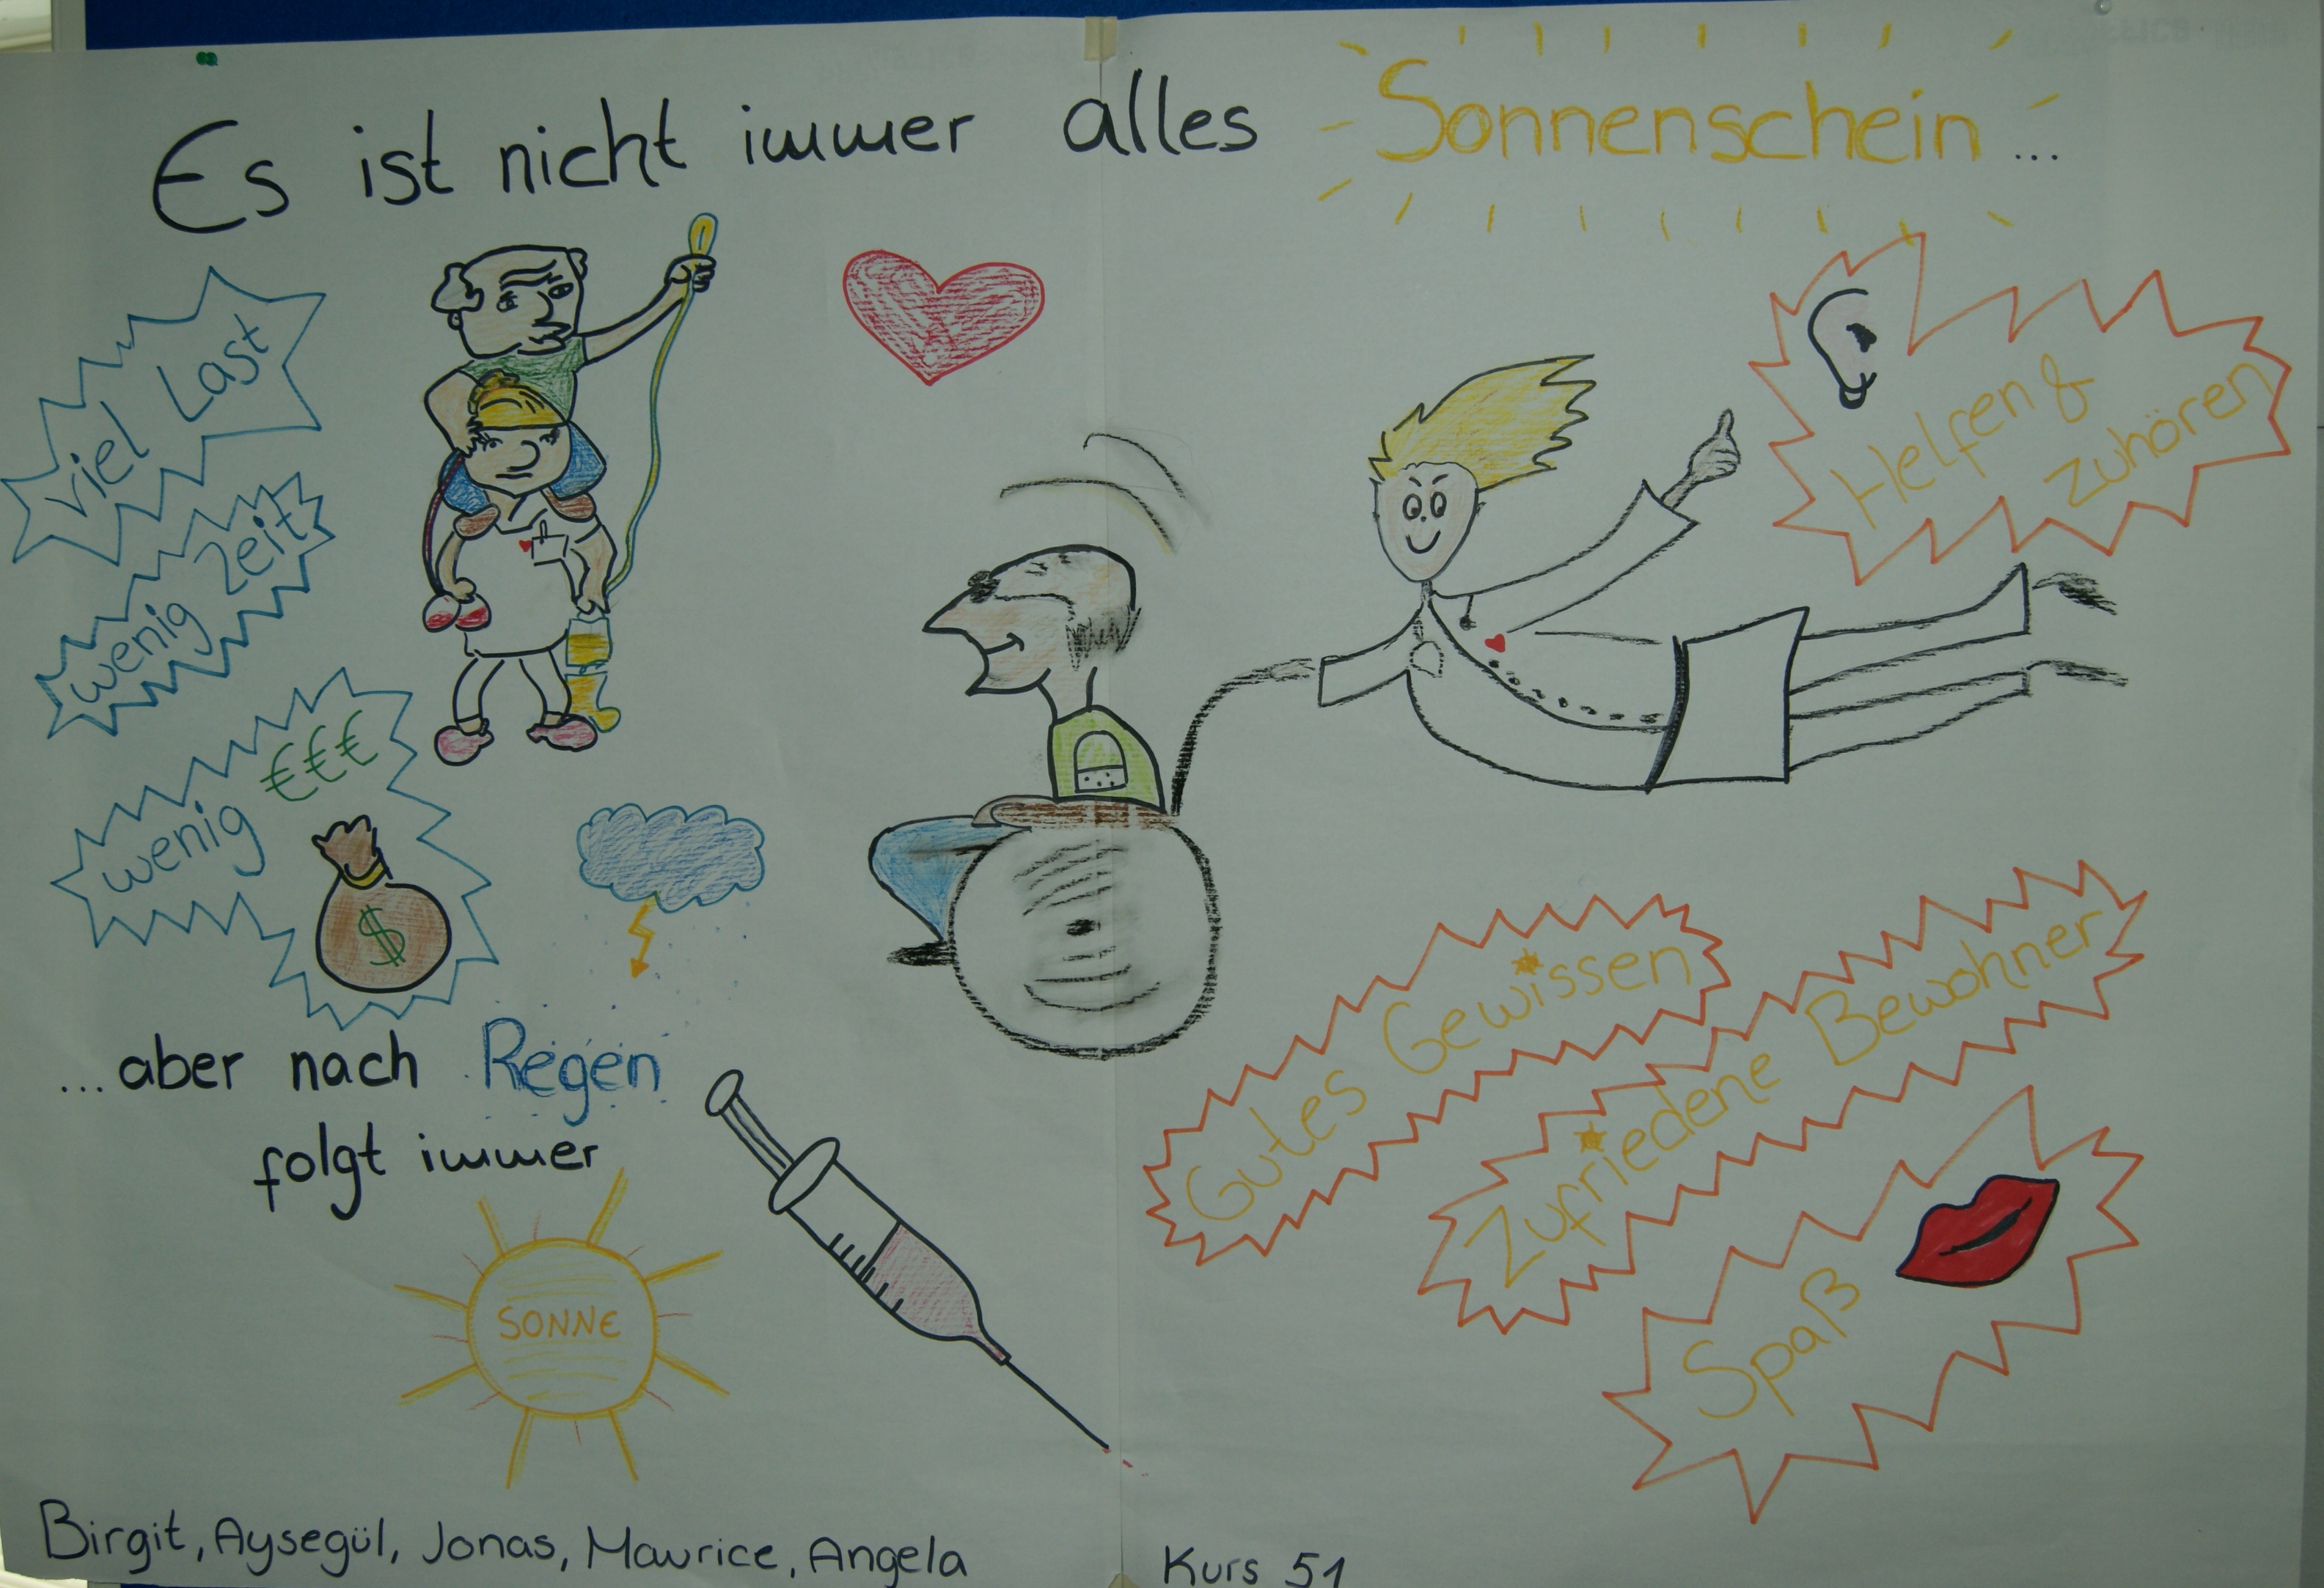 Es ist nicht immer alles Sonnenschein...
viel Last
wenig Zeit
wenig €€€
$
Helfen &
zuhören
Gutes Gewissen
Zufriedene Bewohner
Spaß
...aber nach Regen
folgt immer
SONNE
Birgit, Aysegül, Jonas, Maurice, Angela Kurs 51